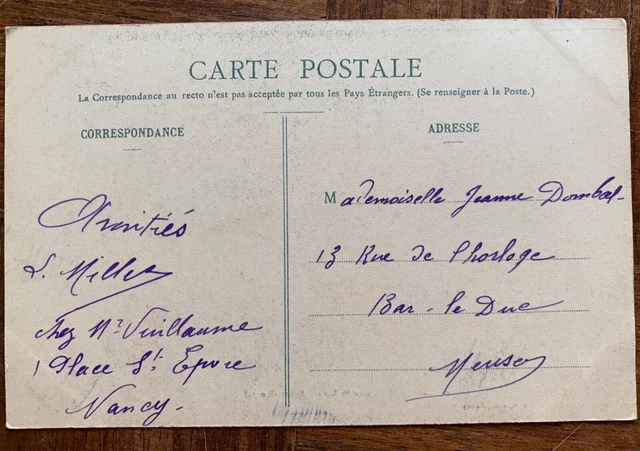 CARTE POSTALE
La Correspondance au recto n'est pas acceptée par tous les Pays Étrangers. (Se renseigner à la Poste.)
CORRESPONDANCE
Amitiés
L. Millet
Chez Mr Vuillaume
1 Place St. Epvre
Nancy.
ADRESSE
Mademoiselle Jeanne Dombal
13 Rue de l'horloge
Bar-le Duc
Meuse